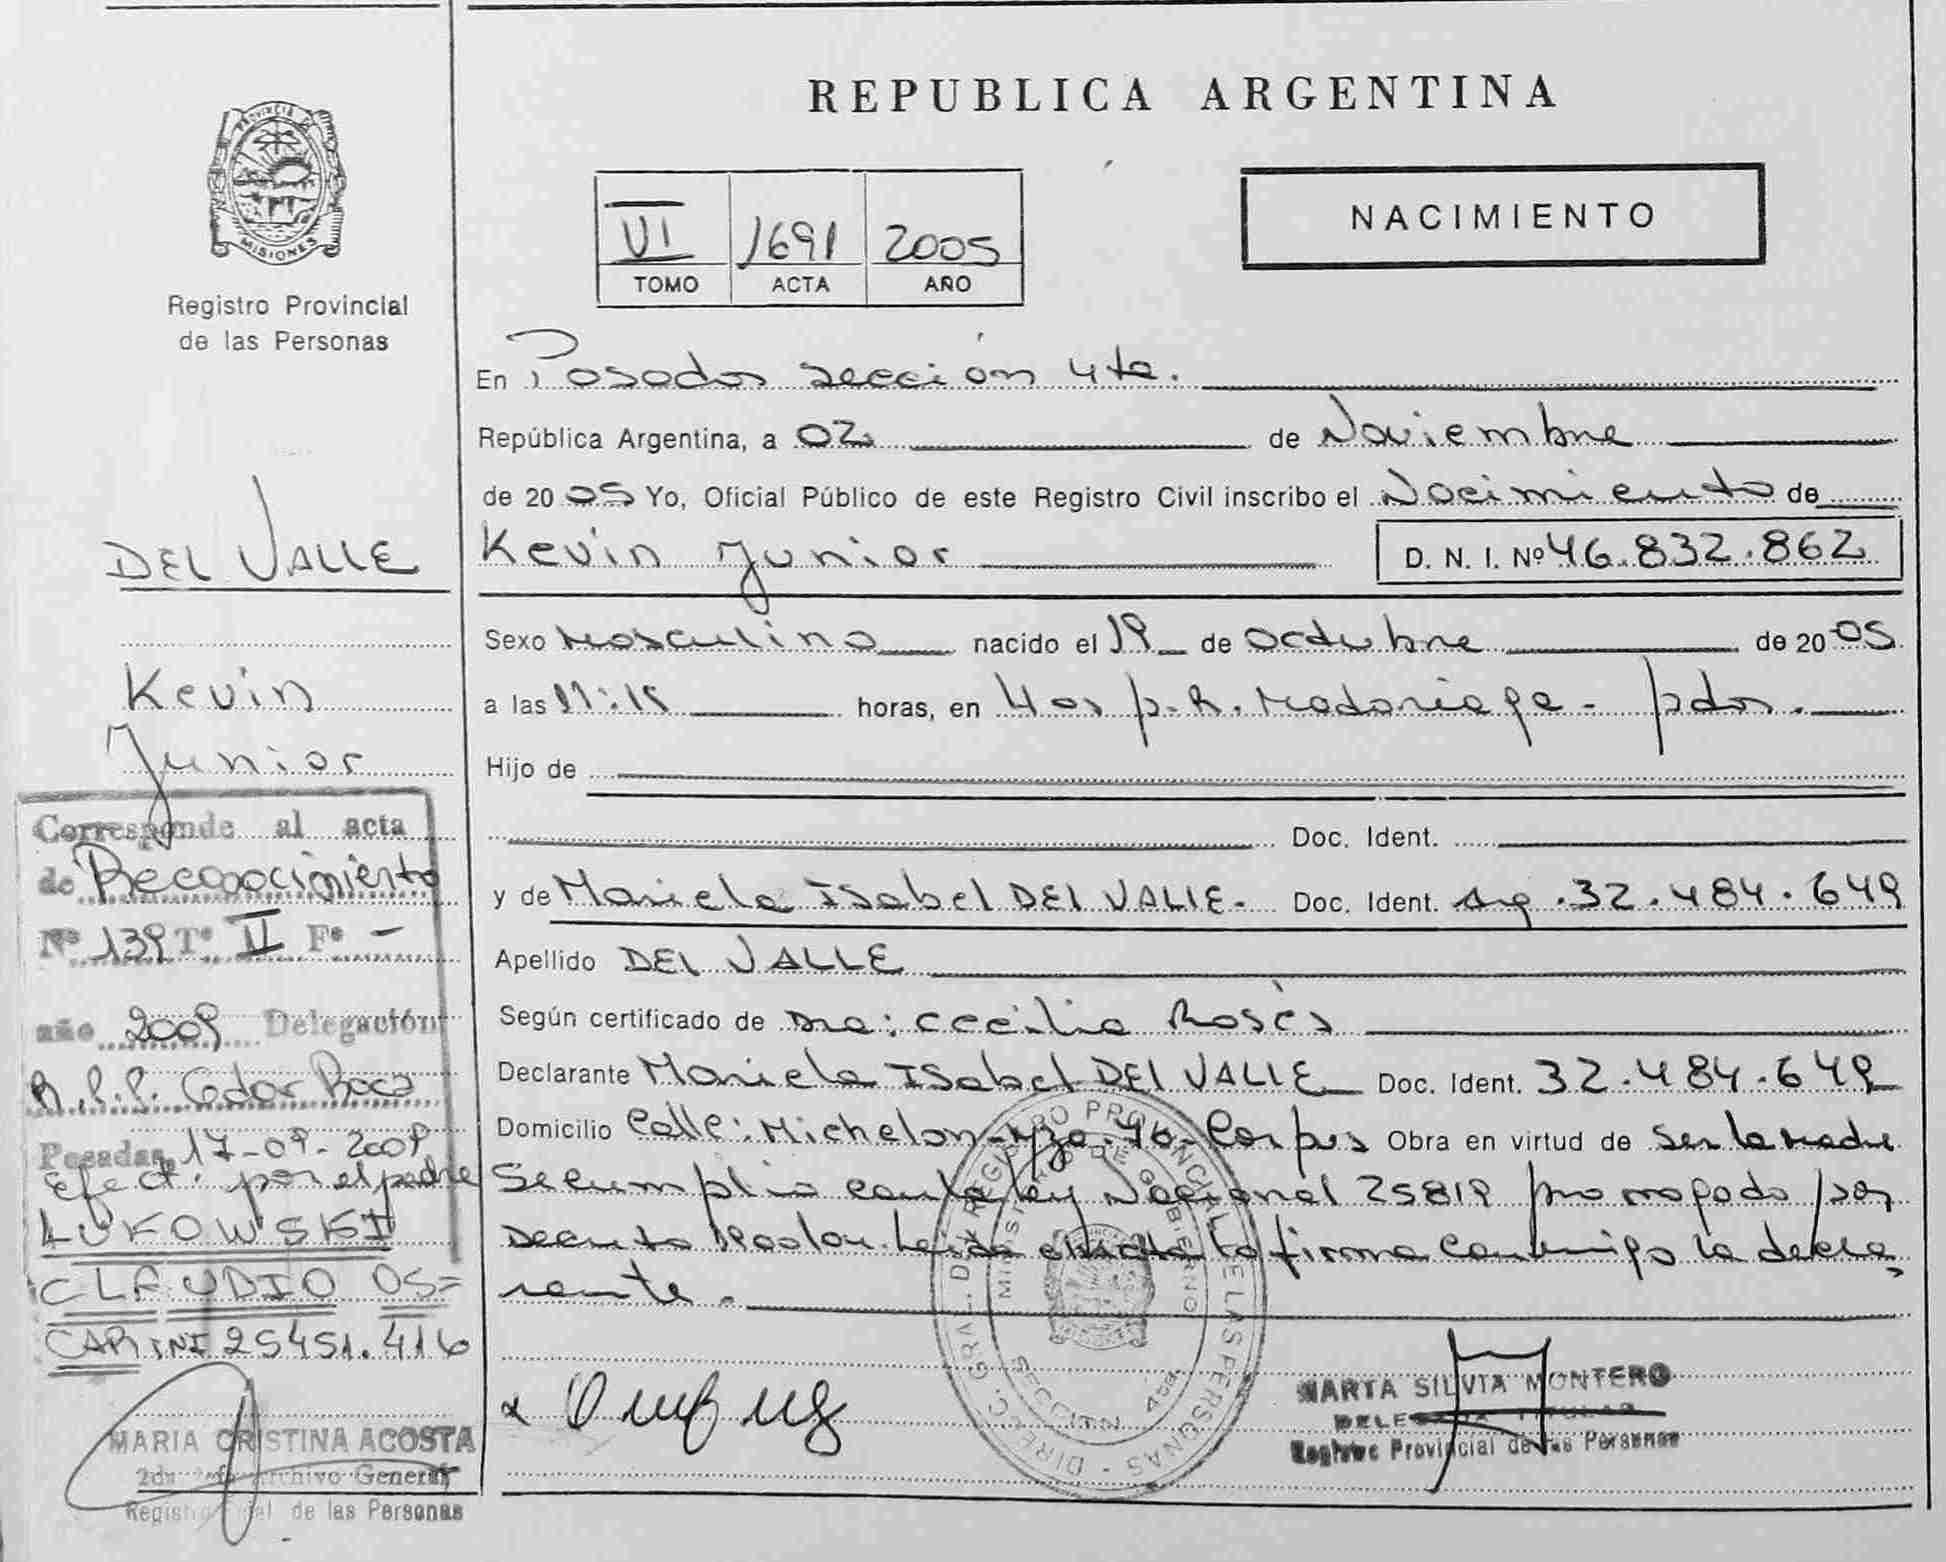 PROVINCIA DE
MISIONES
Registro Provincial
de las Personas
DEL VALLE
Kevin
Junior
Corresponde al acta
de Reconocimiento
Nº 139 Tº II Fº -
año 2009 Delegación
R.P.P. Cador Roca
Posadas, 17-09-2009
Efect. por el padre
LUKOWSKI
CLAUDIO OS=
CAR DNI 25451.416
MARIA CRISTINA ACOSTA
2da Jefe Archivo General
Registro Provincial de las Personas
REPUBLICA ARGENTINA
VI 1691 2005
TOMO ACTA AÑO
NACIMIENTO
En Posadas sección 4ta.
República Argentina, a 02 de Noviembre
de 2005 Yo, Oficial Público de este Registro Civil inscribo el Nacimiento de
Kevin Junior D. N. I. Nº 46.832.862
Sexo Masculino nacido el 19 de octubre de 2005
a las 11:15 horas, en Hosp. R. Madariaga - pdas.
Hijo de
Doc. Ident.
y de Mariela Isabel DEL VALLE. Doc. Ident. Arg. 32.484.649
Apellido DEL VALLE
Según certificado de Dra: Cecilia Rosés
Declarante Mariela Isabel DEL VALLE Doc. Ident. 32.484.649
Domicilio Calle: Michelon - 46 - Corpus Obra en virtud de ser la madre
Se cumplio con la ley Nacional 25819 prorrogado por
Decreto Leida el acta la firma conmigo la decla
rante.
DIREC. GRAL. DE REGISTRO PROVINCIAL DE LAS PERSONAS
MINISTERIO DE GOBIERNO
SECCION 4ta
MARTA SILVIA MONTERO
DELEGADA TITULAR
Registro Provincial de las Personas